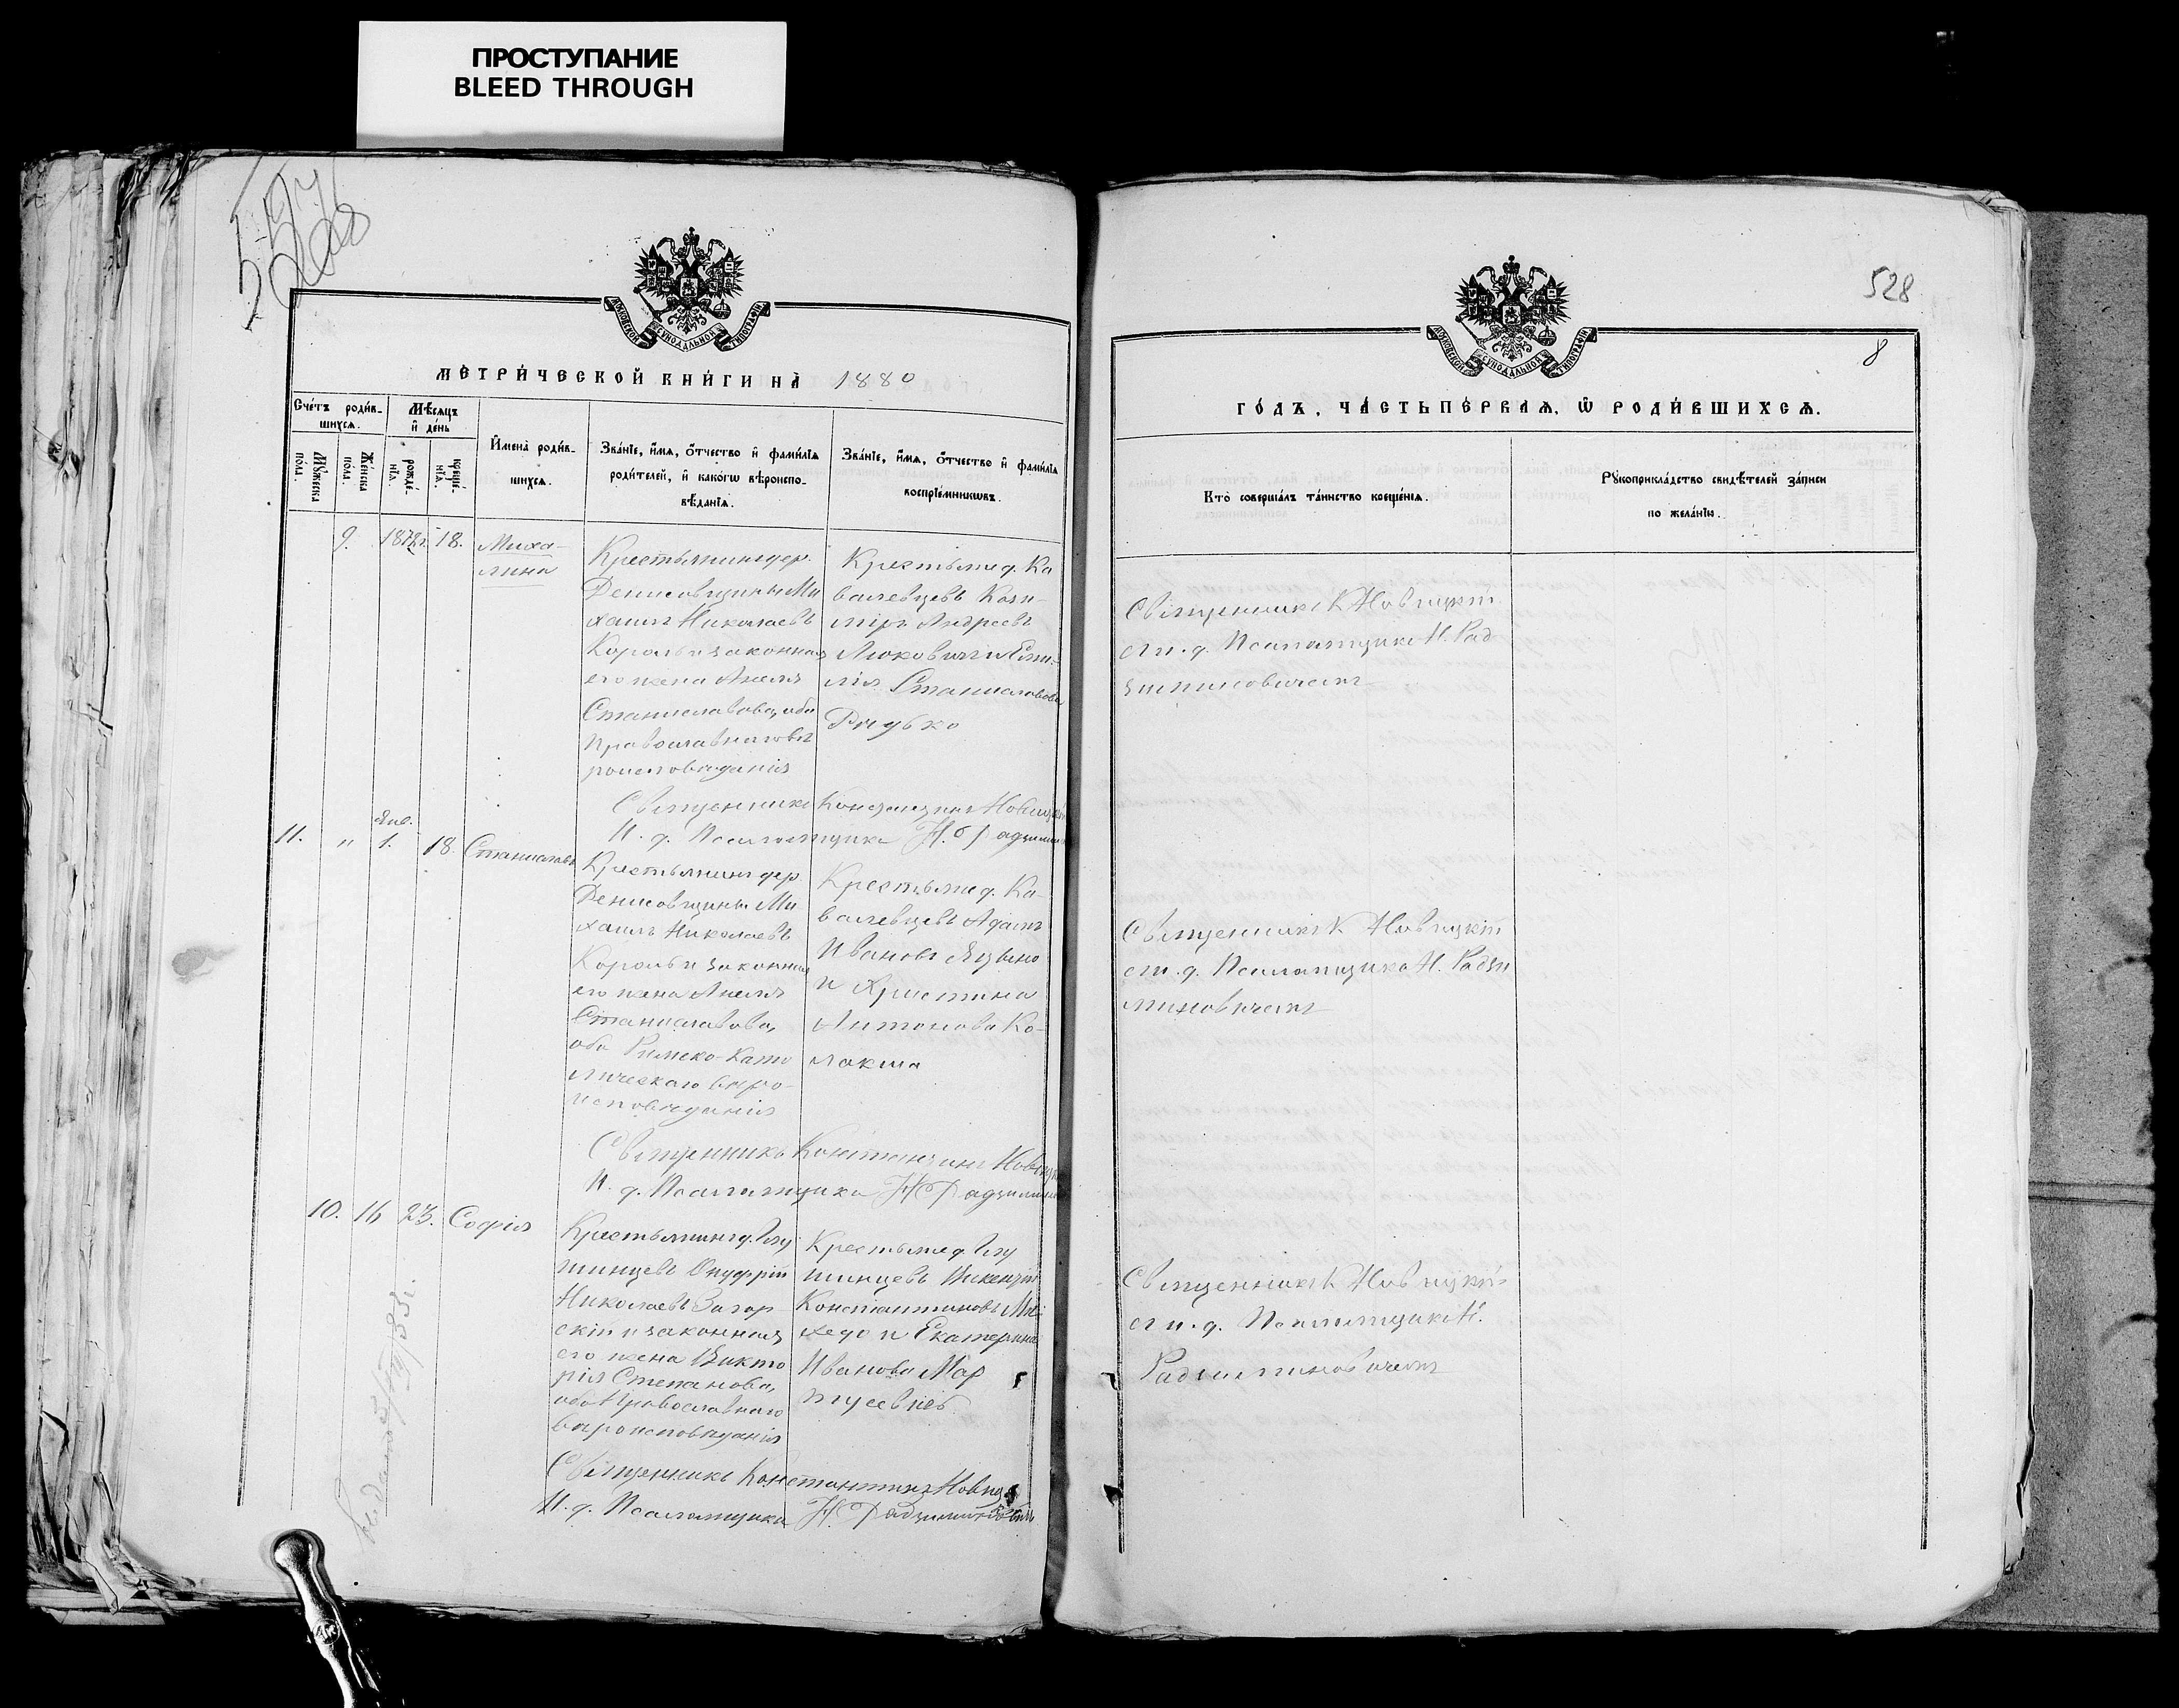 ПРОСТУПАНИЕ
BLEED THROUGH
528
8
МОСКОВСКОЙ СѴНОДАЛЬНОЙ ТИПОГРАФІИ
МОСКОВСКОЙ СѴНОДАЛЬНОЙ ТИПОГРАФІИ
МЕТРИ́ЧЕСКОЙ КНИ́ГИ НА̀ 1880
ГО́ДЪ, ЧА́СТЬ ПЕ́РВАЯ, Ѡ҆ РОДИ́ВШИХСЯ.
Сче́тъ роди́в-
шихся.
Мꙋ́жеска по́ла.
Же́нска по́ла.
Мѣ́сяцъ и҆ де́нь
рожде́-нїя.
креще́-нїя.
И҆мена̀ роди́в-
шихся.
Зва́нїе, и҆́мя, ѻ҆́тчество и҆ фами́лїя
роди́телей, и҆ како́гѡ вѣроиспо-
вѣ́данїя.
Зва́нїе, и҆́мя, ѻ҆́тчество и҆ фами́лїя
воспрїе́мникѡвъ.
Кто̀ соверша́лъ та́инство креще́нїя.
Рꙋкоприкла́дство свидѣ́телей за́писи
по жела́нїю.
9. 18.
Миха-
лина
Крестьянинъ дер.
Денисовщины Ми
хаилъ Николаевъ
Король и законная
его жена Анеля
Станиславова, оба
Православнаго вѣ
роисповѣданія
Крестьяне д. Ка
валевцевъ Кази-
міръ Андреевъ
Люковичъ и Еми-
лія Станиславова
Рудько
Священникъ К Новицкій
съ и. д. Псаломщика Н. Рад
зиминовичемъ
Священникъ Константинъ Новицкій
И. д. Псаломщика Н. Радзимин
11. " Янв. 1. 18. Станиславъ
Крестьянинъ дер.
Денисовщины Ми
хаилъ Николаевъ
Король и законная
его жена Анеля
Станиславова,
оба Римско-Като
лическаго вѣро-
исповѣданія
Крестьяне д. Ка-
валевцевъ Адамъ
Ивановъ
и Христина
Антонова Ко-
локша
Священникъ К Новицкій
съ и. д. Псаломщика Н. Радзи
миновичемъ
Священникъ Константинъ Новицкій
И. д. Псаломщика Н Радзимин
10. 16 23. Софія
Крестьянинъ д. Глу
шинцевъ Онуфрій
Николаевъ Загор
скій и законная
его жена Викто
рія Степанова,
оба Православнаго
вѣроисповѣданія
Крестьяне д. Глу
шинцевъ Викентій
Константиновъ Ми-
хедо и Екатерина
Иванова Мар
Священникъ К Новицкій
съ и. д. Псаломщика Н.
Радзиминовичемъ
Священникъ Константинъ Новицк
И. д. Псаломщика Н Радзиминовичъ